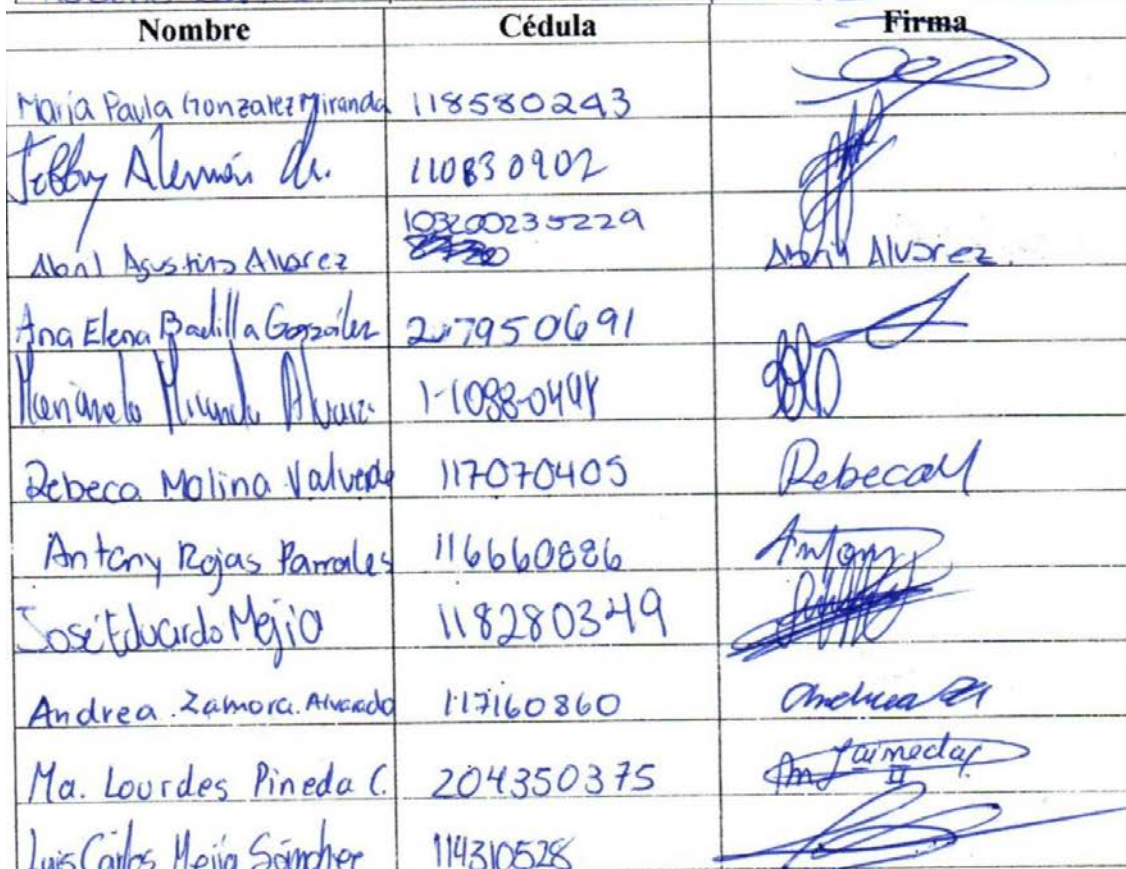 Nombre Cédula Firma
María Paula Gonzalez Miranda 118580243
Alemán 110830902
103200235229
Abril Agustina Alvarez Abril Alvarez.
Ana Elena Badilla González 207950691
Marianela Miranda 1-1088-0444
Rebeca Molina Valverde 117070405 RebecaM
Antony Rojas Parrales 116660886 Antony
José Eduardo Mejia 118280349
Andrea Zamora Alvarado 117160860 Andrea
Ma. Lourdes Pineda C. 204350375
Luis Carlos Mejía Sánchez 114310528